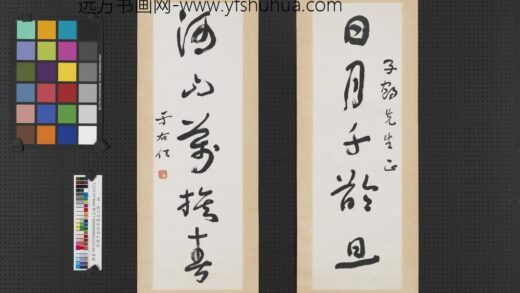 远方书画网-www.yfshuhua.com
日月千龄旦
子鹤先生正
河山万族春
于右任